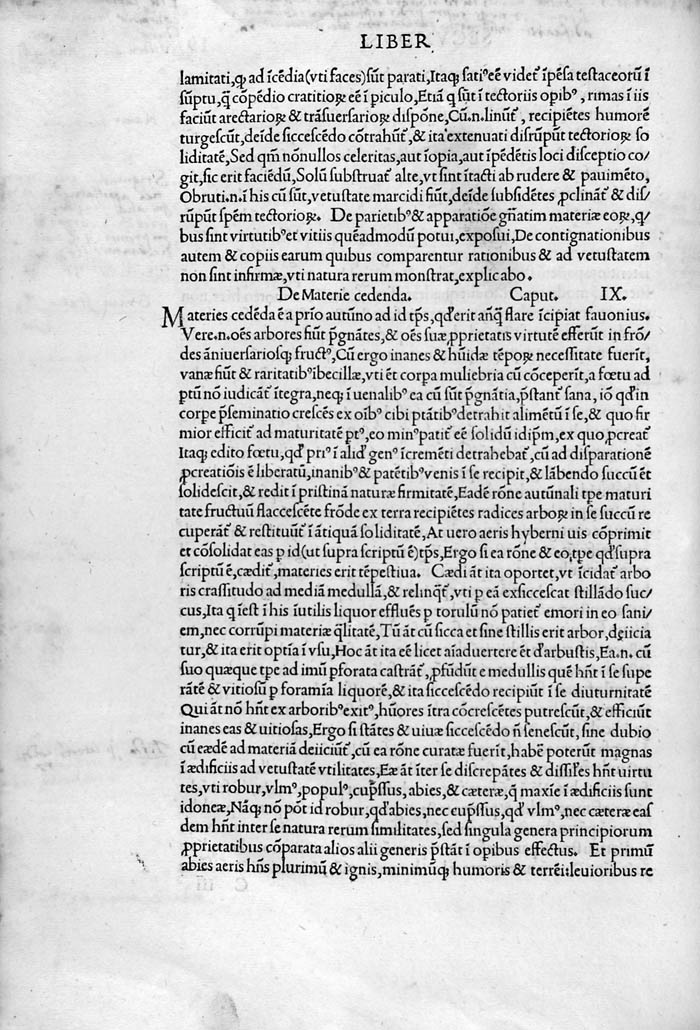 LIBER
lamitati,q̃ ad īcēdia(vti faces)sūt parati,Itaq; sati⁹ eē videt᷑ īpēsa testaceoꝝ ī
sūptu,q̃ cōpēdio cratitioꝝ eē ī piculo,Etiā q̃ sūt ī tectoriis opib⁹, rimas ī iis
faciūt arectarioꝝ & trāsuersarioꝝ dispōne,Cū.n.linūt᷑, recipiētes humorē
turgescūt,deīde siccescēdo cōtrahūt᷑,& ita extenuati disrūpūt tectorioꝝ so
liditatē,Sed qm̄ nōnullos celeritas,aut īopia,aut īpēdētis loci disceptio co/
git,sic erit faciēdū,Solū substruat᷑ alte,vt sint ītacti ab rudere & pauimēto,
Obruti.n.ī his cū sūt,vetustate marcidi fiūt,deīde subsidētes ꝓclināt᷑ & dis/
rūpūt spēm tectorioꝝ. De parietib⁹ & apparatiōe gn̄atim materiæ eoꝝ,q/
bus sint virtutib⁹ et vitiis quēadmodū potui,exposui,De contignationibus
autem & copiis earum quibus comparentur rationibus & ad vetustatem
non sint infirmæ,vti natura rerum monstrat,explicabo.
De Materie cedenda. Caput. IX.
Materies cedēda ē a prīo autūno ad id tp̄s,qd̓ erit añq̃ flare īcipiat fauonius.
Vere.n.oēs arbores fiūt p̄gnātes,& oēs suæ,ꝓprietatis virtutē efferūt in frō/
des āniuersariosq; fruct⁹,Cū ergo inanes & hūidæ tēpoꝝ necessitate fuerīt,
vanæ fiūt & raritatib⁹ ībecillæ,vti ēt corpa muliebria cū cōceperīt,a fœtu ad
ptū nō iudicāt᷑ ītegra,neq; ī uenalib⁹ ea cū sūt p̄gnātia,p̄stant᷑ sana, iō qd̓ in
corpe p̄seminatio crescēs ex oīb⁹ cibi ptātib⁹ detrahit alimētū ī se,& quo fir
mior efficit᷑ ad maturitatē pt⁹,eo min⁹ patit᷑ eē solidū idip̄m,ex quo ꝓcreat᷑
Itaq; edito fœtu,qd̓ pri⁹ ī aliđ gen⁹ īcremēti detrahebat᷑,cū ad disparationē
ꝓcreatiōis ē liberatū,inanib⁹ & patētib⁹ venis ī se recipit,& lābendo succū ēt
solidescit,& redit ī pristinā naturæ firmitatē,Eadē rōne autūnali tp̄e maturi
tate fructuū flaccescēte frōde ex terra recipiētes radices arboꝝ in se succū re
cuperāt᷑ & restituūt᷑ ī ātiquā soliditatē,At uero aeris hyberni uis cōprimit
et cōsolidat eas p id(ut supra scriptū ē)tp̄s,Ergo si ea rōne & eo,tp̄e qd̓ supra
scriptū ē,cædit᷑,materies erit tēpestiua. Cædi āt ita oportet,vt īcidat᷑ arbo
ris crassitudo ad mediā medullā,& relinq̃t᷑,vti p eā exsiccescat stillādo suc/
cus,Ita q̃ īest ī his īutilis liquor effluēs p torulū nō patiet᷑ emori in eo sani/
em,nec corrūpi materiæ q̃litatē,Tū āt cū sicca et sine stillis erit arbor,deiicia
tur,& ita erit optīa ī vsu,Hoc āt ita eē licet aīaduertere ēt d̓ arbustis,Ea.n. cū
suo quæque tp̄e ad imū pforata castrāt᷑,ꝓfūdūt e medullis quē hn̄t ī se supe
rātē & vitiosū p foramīa liquorē,& ita siccescēdo recipiūt ī se diuturnitatē
Qui āt nō hn̄t ex arborib⁹ exit⁹,hūores ītra cōcrescētes putrescūt,& efficiūt
inanes eas & uitiosas,Ergo si stātes & uiuæ siccescēdo ñ senescūt,sine dubio
cū eædē ad materiā deiiciūt᷑,cū ea rōne curatæ fuerīt,habē poterūt magnas
ī ædificiis ad vetustatē vtilitates,Eæ āt īter se discrepātes & dissiles hn̄t virtu
tes,vti robur,vlm⁹,popul⁹,cup̄ssus,abies,& cæteræ,q̃ maxīe ī ædificiis sunt
idoneæ,Nāq; nō pōt id robur,qd̓ abies,nec cup̄ssus,qd̓ vlm⁹,nec cæteræ eas
dem hn̄t inter se natura rerum similitates,sed singula genera principiorum
ꝓprietatibus cōparata alios alii generis p̄stāt ī opibus effectus. Et primū
abies aeris hn̄s plurimū & ignis,minimūq; humoris & terrēi:leuioribus re